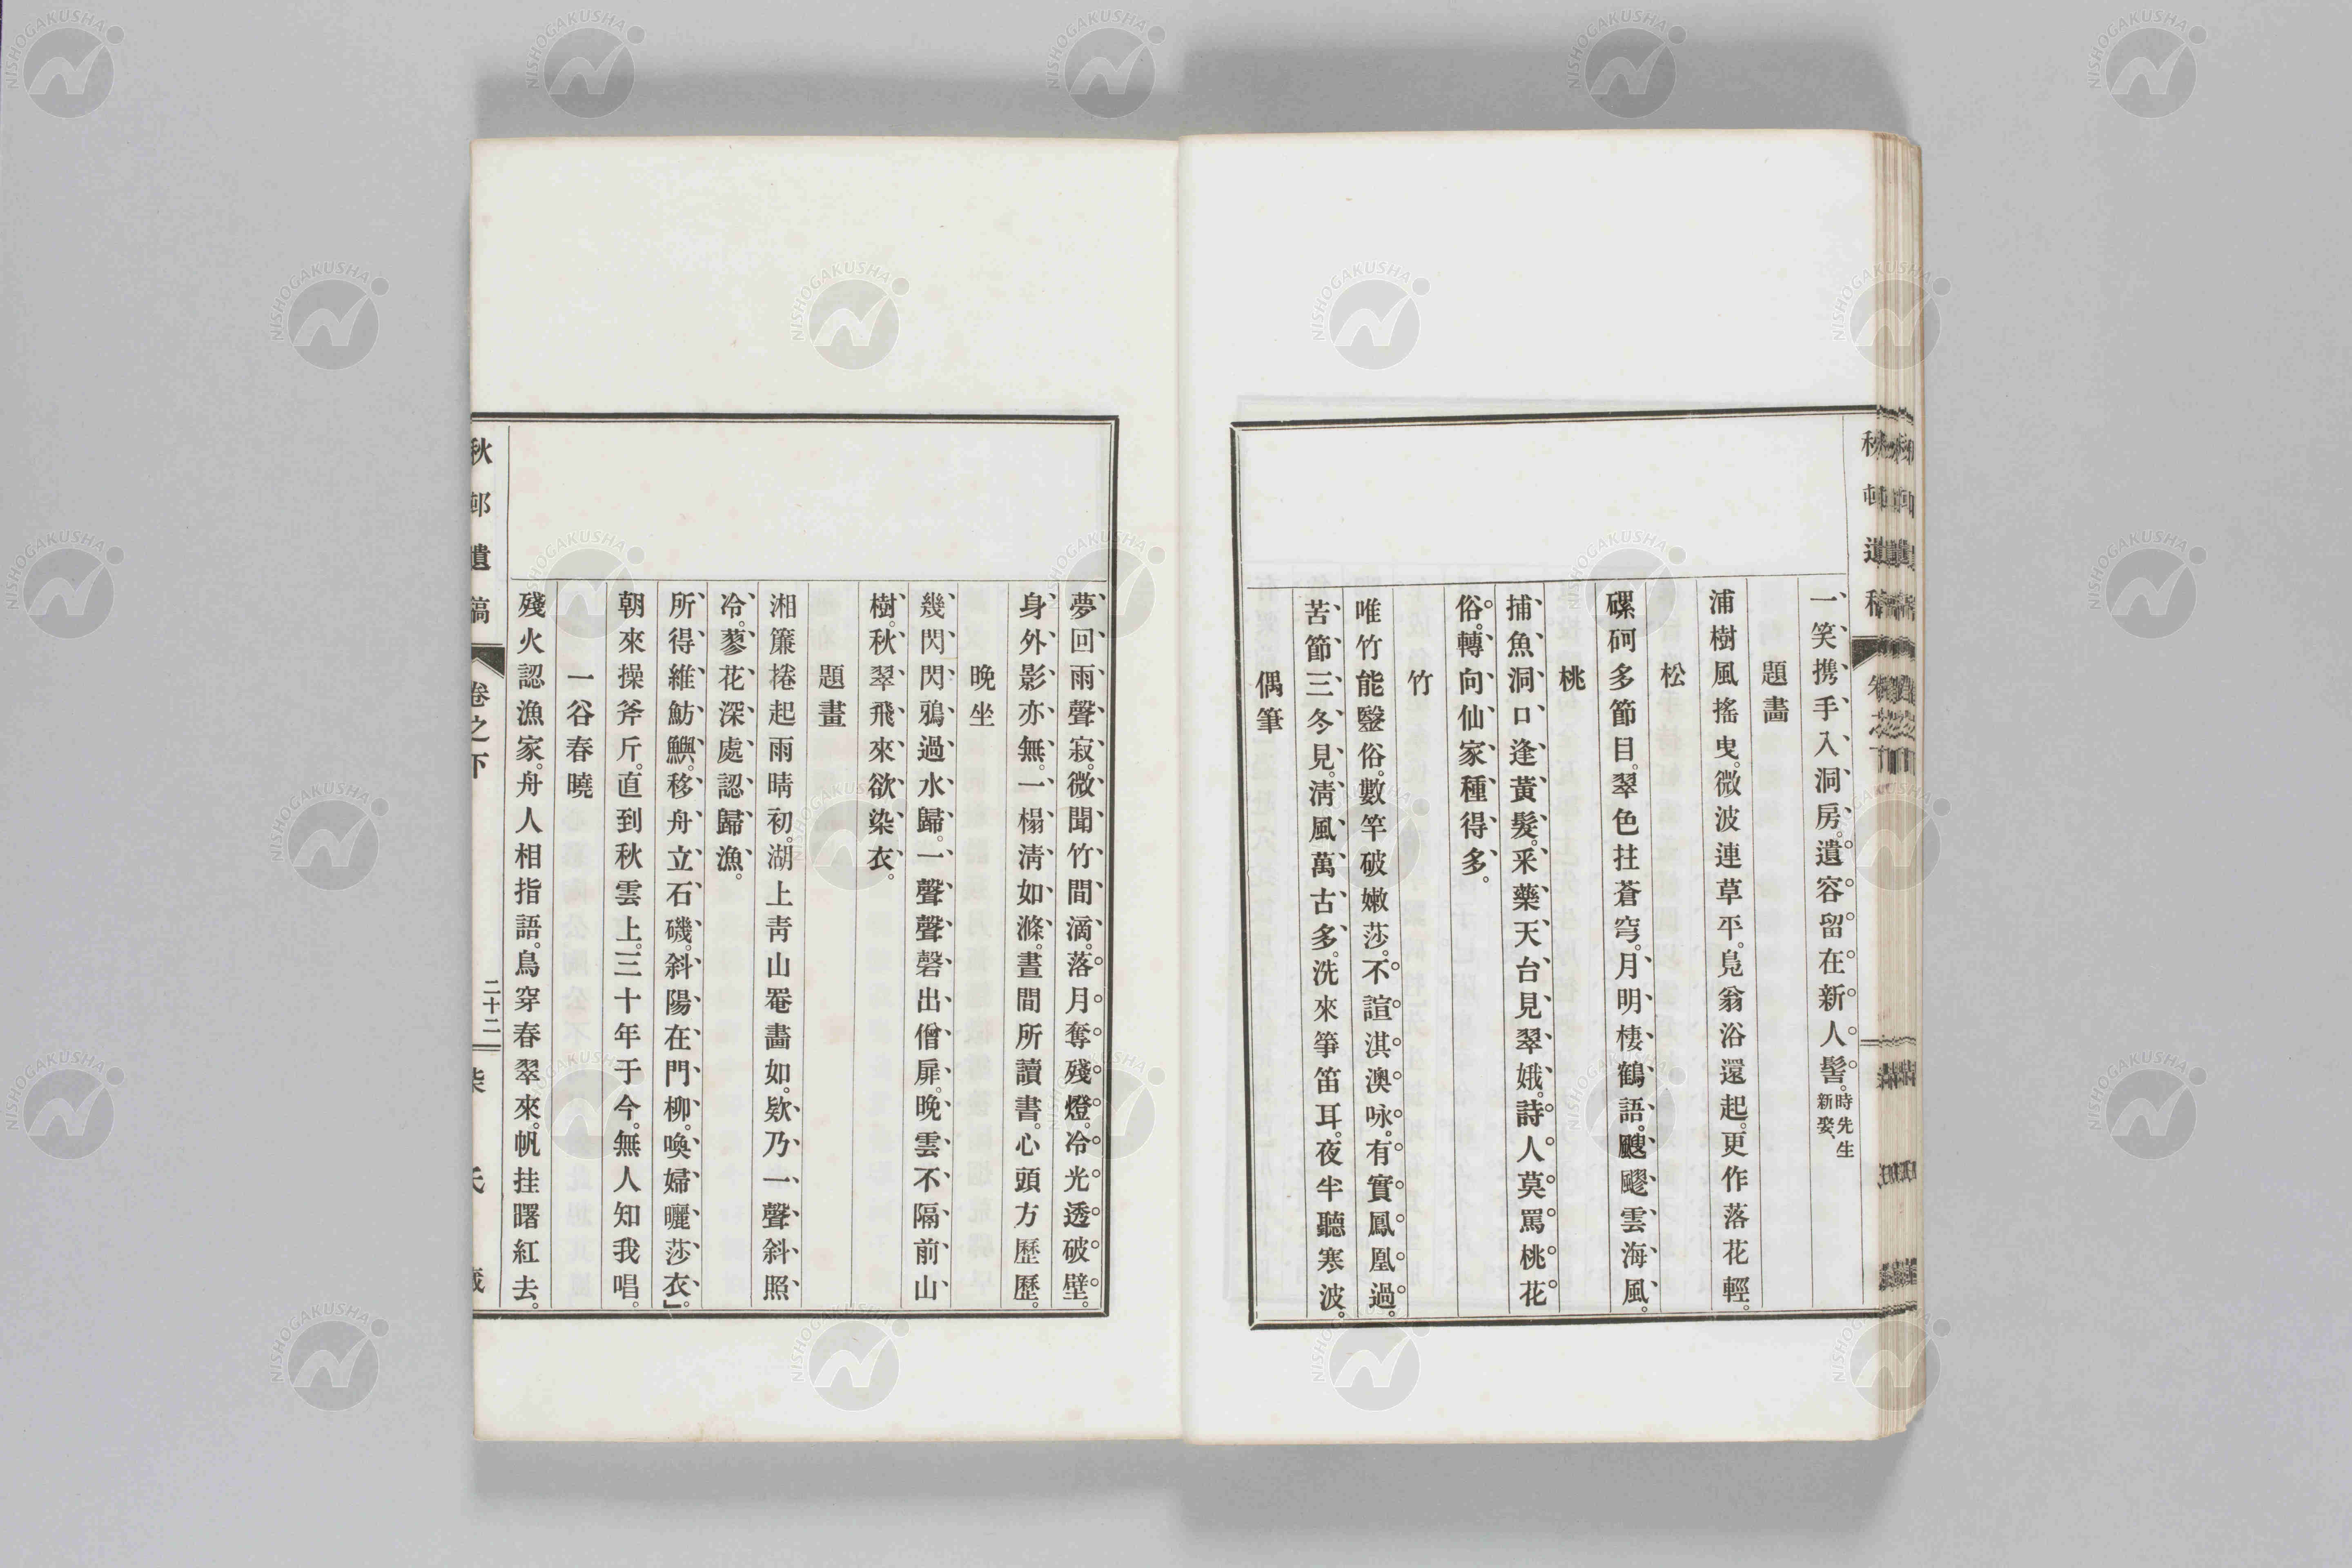 一笑携手入洞房。遺容留在新人髻。時先生新娶、
題畵
浦樹風搖曳。微波連草平。鳧翁浴還起。更作落花輕。
松
磥砢多節目。翠色拄蒼穹。月明棲鶴語。飂飂雲海風。
桃
捕魚洞口逢黃髮。釆藥天台見翠娥。詩人莫罵桃花
俗。轉向仙家種得多。
竹
唯竹能毉俗。數竿破嫩莎。不諠淇澳咏。有實鳳凰過。
苦節三冬見。淸風萬古多。洗來箏笛耳。夜半聽寒波。
偶筆
夢回雨聲寂。微聞竹間滴。落月奪殘燈。冷光透破壁。
身外影亦無。一榻淸如滌。晝間所讀書。心頭方歷歷。
晚坐
幾閃閃鴉過水歸。一聲聲磬出僧扉。晚雲不隔前山
樹。秋翠飛來欲染衣。
題畵
湘簾捲起雨晴初。湖上靑山罨畵如。欵乃一聲斜照
冷。蓼花深處認歸漁。
所得維魴鱮。移舟立石磯。斜陽在門柳。喚婦曬莎衣。」
朝來操斧斤。直到秋雲上。三十年于今。無人知我唱。
一谷春曉
殘火認漁家。舟人相指語。鳥穿春翠來。帆挂曙紅去。
秋邨遺稿 卷之下 二十二